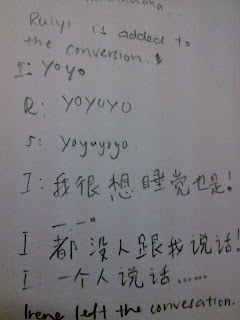 Ruiyi is added to
the conversion.
I: Yoyo
R: yoyoyo
S: yoyoyoyo
I: 我很想睡觉也是!
—.—"
I: 都没人跟我说话!
I: 一个人说话......
Irene left the convesation.